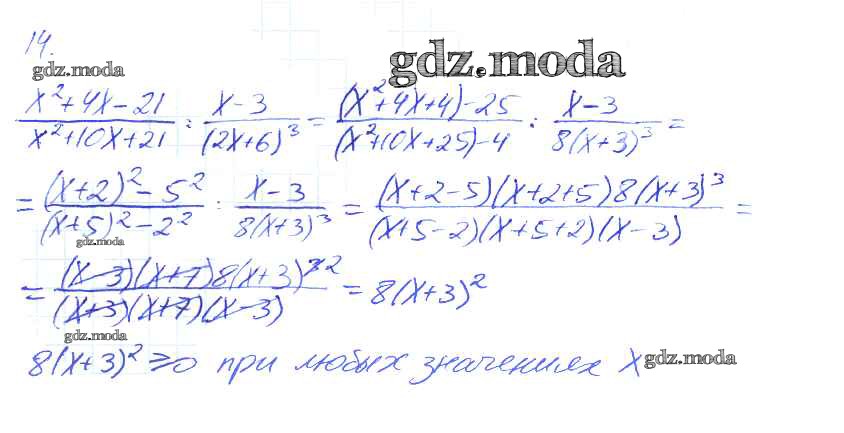 14.
gdz.moda
gdz.moda
(x²+4x-21)/(x²+10x+21) : (x-3)/(2x+6)³ = ((x²+4x+4)-25)/((x²+10x+25)-4) : (x-3)/(8(x+3)³) =
= ((x+2)²-5²)/((x+5)²-2²) : (x-3)/(8(x+3)³) = ((x+2-5)(x+2+5)8(x+3)³)/((x+5-2)(x+5+2)(x-3)) =
gdz.moda
= ((x-3)(x+7)8(x+3)³ ²)/((x+3)(x+7)(x-3)) = 8(x+3)²
gdz.moda
8(x+3)² ⩾0 при любых значениях x
gdz.moda